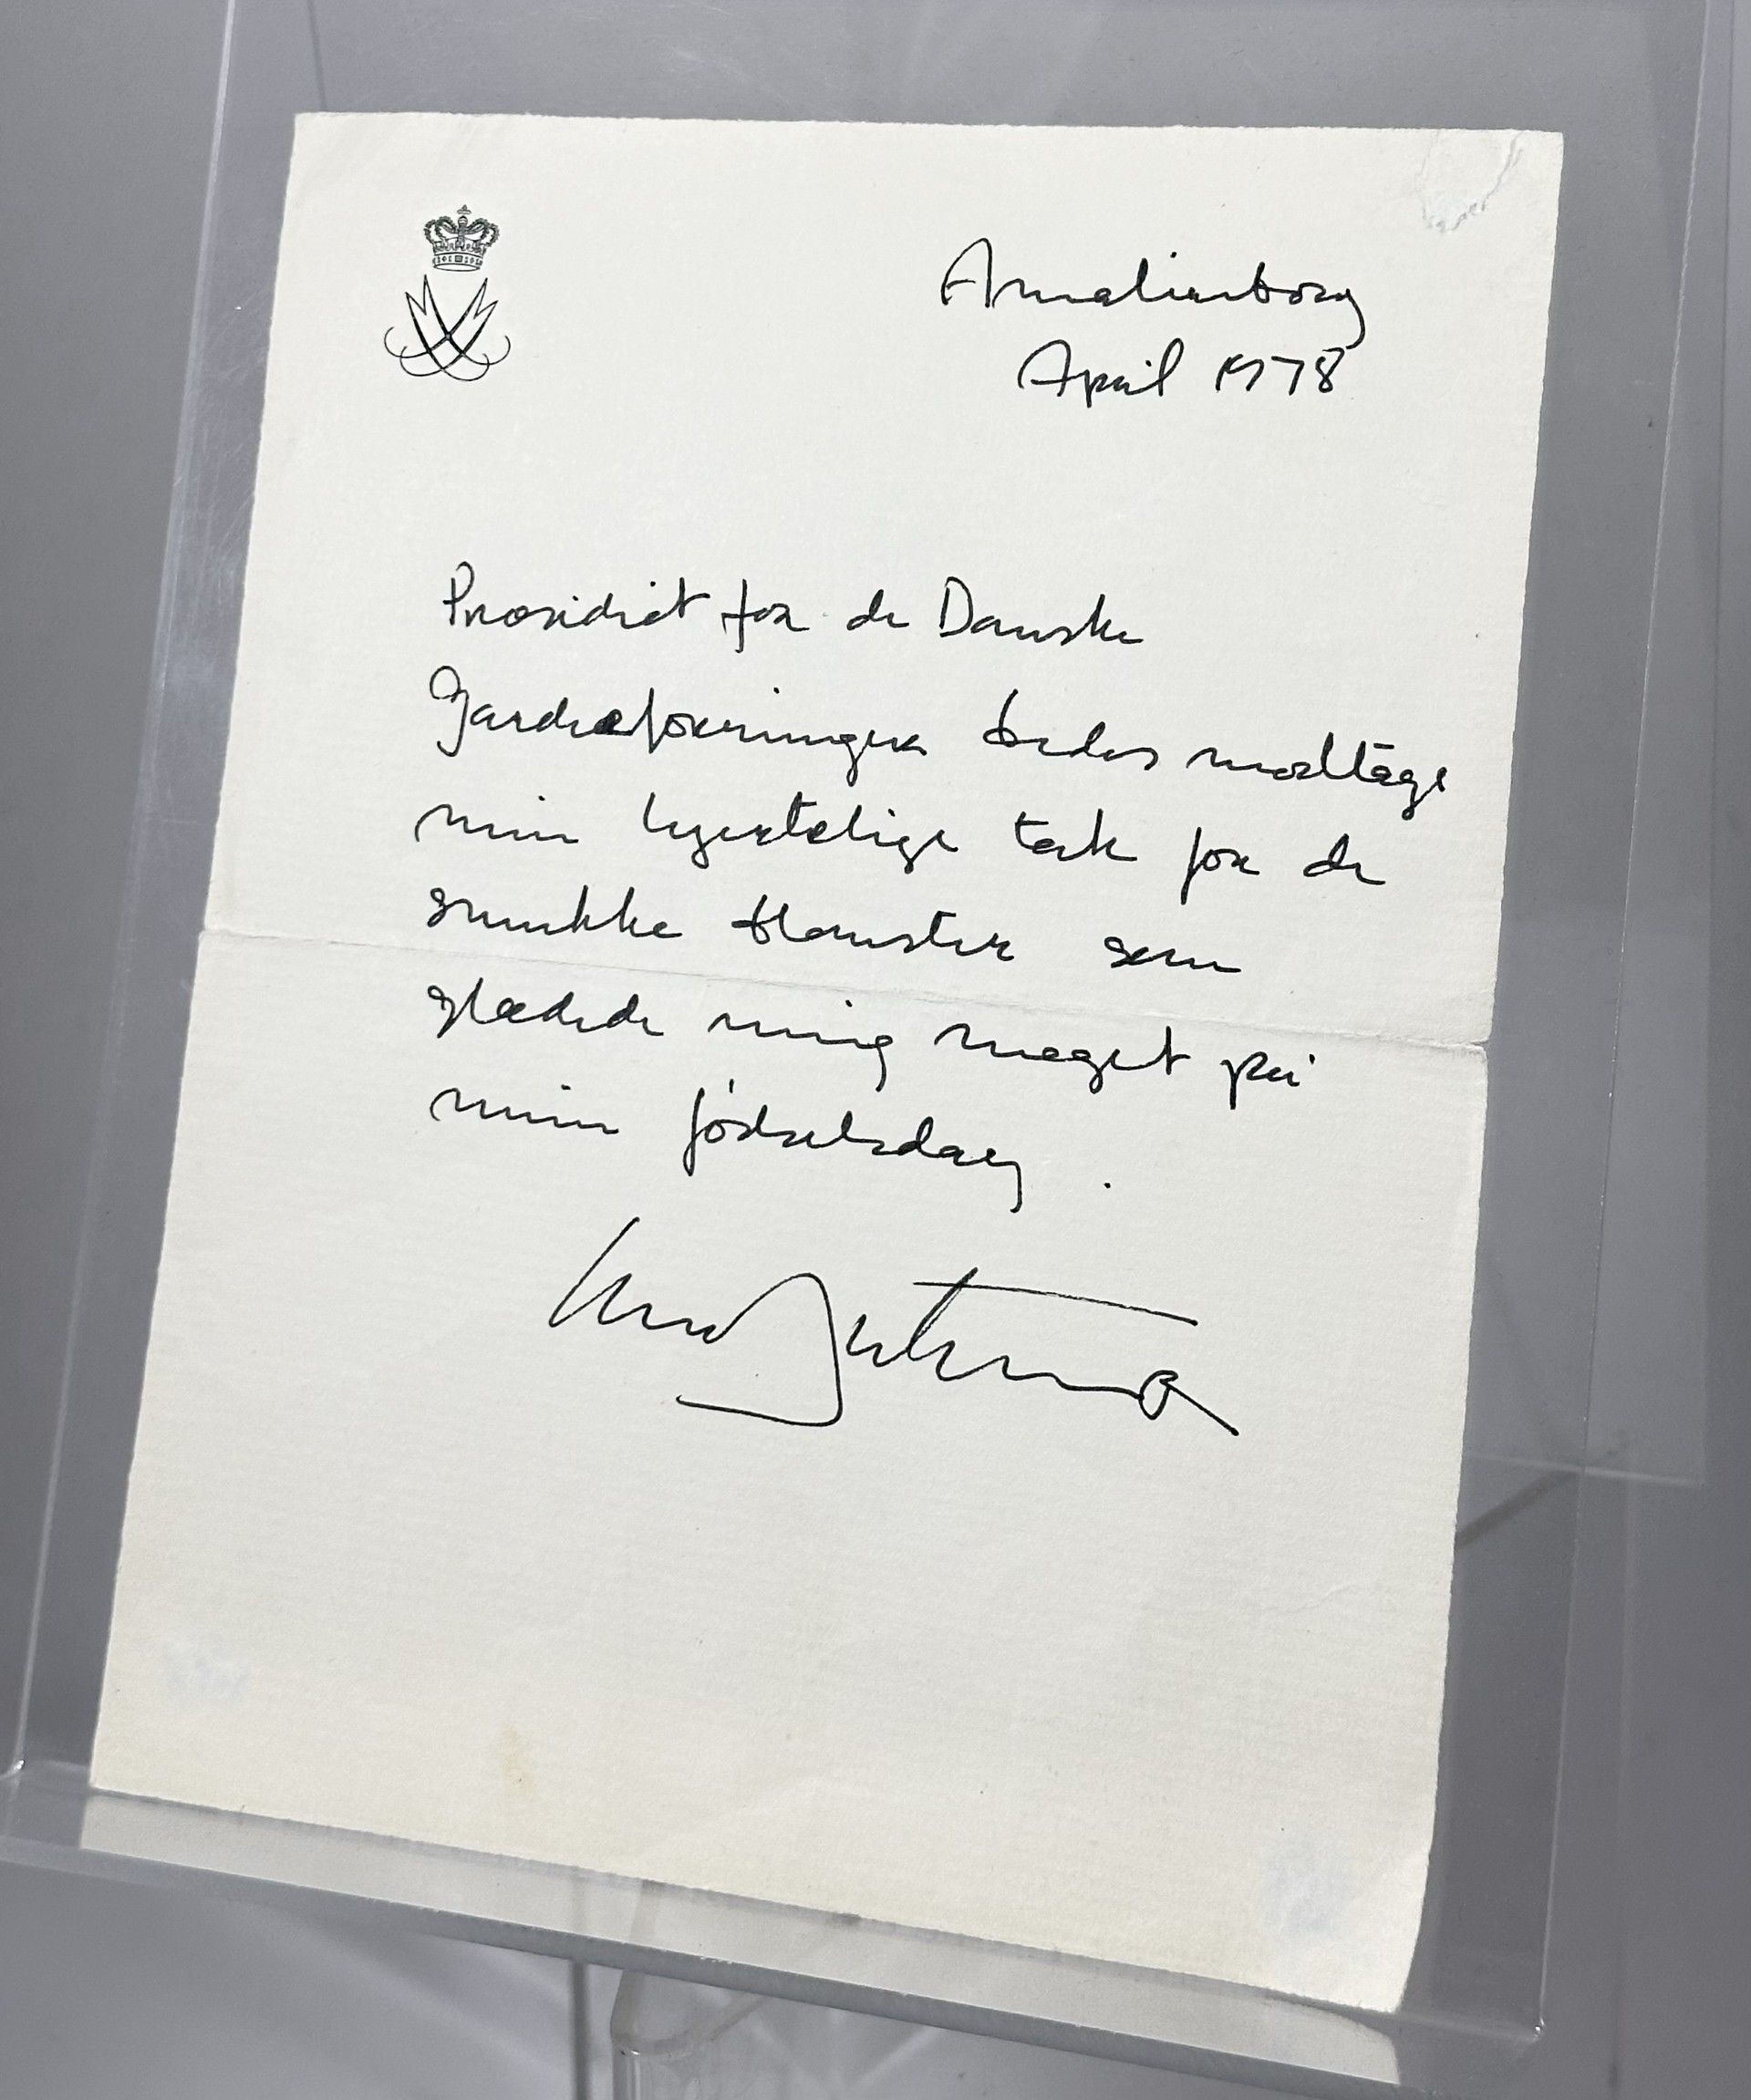 Amalienborg
April 1978
Præsidiet for de Danske
Garderforeninger bedes modtage
min hjertelige tak for de
smukke blomster som
glædede mig meget på
min fødselsdag.
Margrethe R